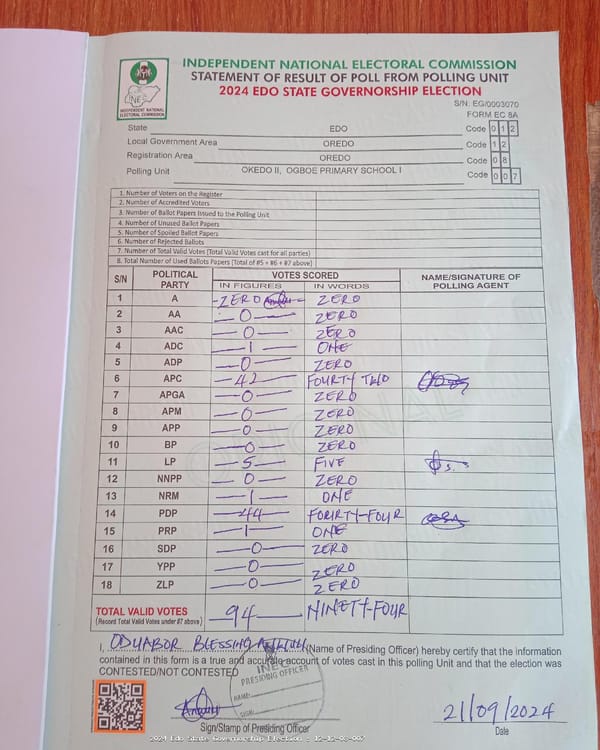 INDEPENDENT NATIONAL ELECTORAL COMMISSION
STATEMENT OF RESULT OF POLL FROM POLLING UNIT
2024 EDO STATE GOVERNORSHIP ELECTION
INEC
INDEPENDENT NATIONAL
ELECTORAL COMMISSION
S/N: EG/0003070
FORM EC 8A
State EDO Code 0 1 2
Local Government Area OREDO Code 1 2
Registration Area OREDO Code 0 8
Polling Unit OKEDO II, OGBOE PRIMARY SCHOOL I Code 0 0 7
1. Number of Voters on the Register
2. Number of Accredited Voters
3. Number of Ballot Papers Issued to the Polling Unit
4. Number of Unused Ballot Papers
5. Number of Spoiled Ballot Papers
6. Number of Rejected Ballots
7. Number of Total Valid Votes (Total Valid Votes cast for all parties)
8. Total Number of Used Ballots Papers (Total of #5 + #6 + #7 above)
S/N POLITICAL PARTY VOTES SCORED NAME/SIGNATURE OF POLLING AGENT
IN FIGURES IN WORDS
1 A ZERO ZERO
2 AA 0 ZERO
3 AAC 0 ZERO
4 ADC 1 ONE
5 ADP 0 ZERO
6 APC 42 FOURTY TWO
7 APGA 0 ZERO
8 APM 0 ZERO
9 APP 0 ZERO
10 BP 0 ZERO
11 LP 5 FIVE
12 NNPP 0 ZERO
13 NRM 1 ONE
14 PDP 44 FOURTY-FOUR
15 PRP 1 ONE
16 SDP 0 ZERO
17 YPP 0 ZERO
18 ZLP 0 ZERO
TOTAL VALID VOTES 94 NINETY-FOUR
(Record Total Valid Votes under #7 above)
I, ODUABOR BLESSING (Name of Presiding Officer) hereby certify that the information
contained in this form is a true and accurate account of votes cast in this polling Unit and that the election was
CONTESTED/NOT CONTESTED
INEC
PRESIDING OFFICER
NAME:
SIGN:
21/09/2024
Sign/Stamp of Presiding Officer Date
2024 Edo State Governorship Election - 12-12-08-007